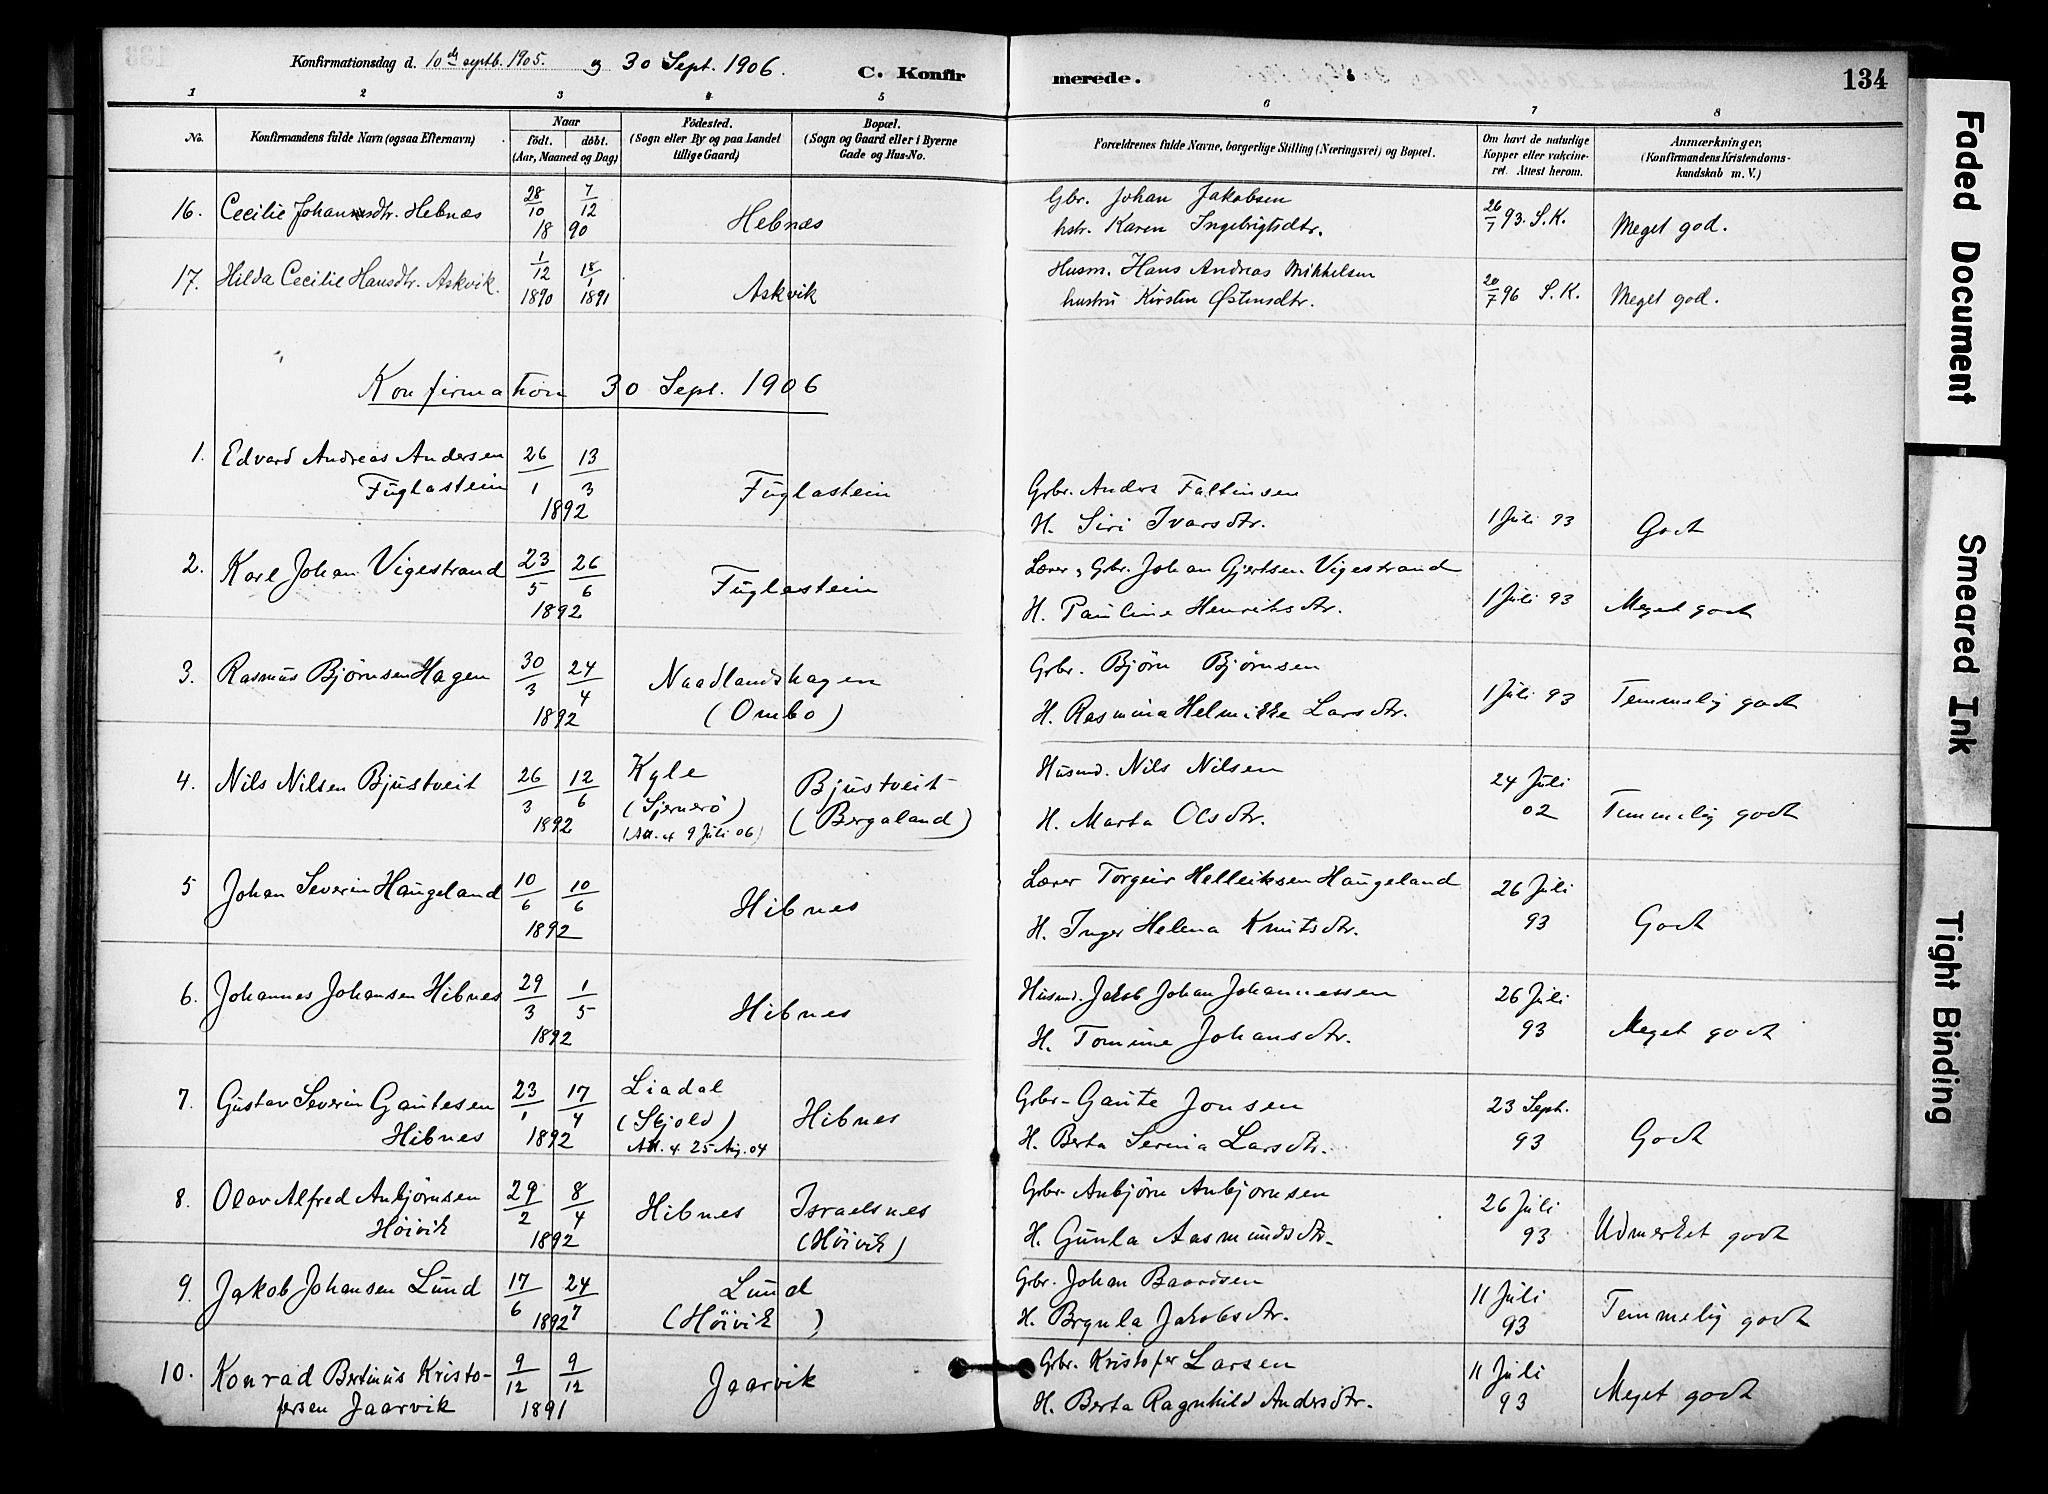 Konfirmationsdag d. 10de septb. 1905. og 30 Sept. 1906. C. Konfirmerede. 134
1 2 3 4 5 6 7 8
No. Konfirmandens fulde Navn (ogsaa Efternavn) Naar födt. döbt. (Aar, Maaned og Dag) Födested. (Sogn eller By og paa Landet tillige Gaard) Bopæl. (Sogn og Gaard eller i Byerne Gade og Hus-No. Forældrenes fulde Navne, borgerlige Stilling (Næringsvei) og Bopæl. Om havt de naturlige Kopper eller vakcineret. Attest herom. Anmærkninger. (Konfirmandens Kristendomskundskab m. V.)
16. Cecilie Johansdtr. Hebnæs 28/10 7/12 1890 Hebnæs Gbr. Johan Jakobsen
hstr. Karen Ingebrigtsdtr. 26/7 93. S.K. Meget god.
17. Hilda Cecilie Hansdtr. Askvik. 1/12 1890 18/1 1891 Askvik Husm. Hans Andreas Mikkelsen
hustru Kirsten Østensdtr. 20/7 96 S.K. Meget god.
Konfirmation 30 Sept. 1906
1. Edvard Andreas Andersen 26/1 13/3
Fuglastein 1892 Fuglastein Grbr. Anders Faltinsen
H. Siri Ivarsdtr. 1 Juli 93 Godt
2. Karl Johan Vigestrand 23/5 26/6 1892 Fuglastein Lærer, Grbr. Johan Gjertsen Vigestrand
H. Pauline Henriksdtr. 1 Juli 93 Meget godt
3. Rasmus Bjørnsen Hagen 30/3 24/4 1892 Naadlandshagen
(Ombo) Grbr. Bjørn Bjørnsen
H. Rasmina Helmikke Larsdtr. 1 Juli 93 Temmelig godt
4. Nils Nilsen Bjustveit 26/3 12/6 1892 Kyle
(Sjernerö)
(Att. 4 9 Juli 06) Bjustveit
(Bergaland) Husmd. Nils Nilsen
H. Marta Olsdtr. 24 Juli
02 Temmelig godt
5 Johan Severin Haugeland 10/6 10/6 1892 Hibnes Lærer Torgeir Helleiksen Haugeland
H. Inger Helena Knutsdtr. 26 Juli
93 Godt
6. Johannes Johansen Hibnes 29/3 1/5 1892 Hibnes Husmd. Jakob Johan Johannessen
H. Tomine Johansdtr. 26 Juli
93 Meget godt
7. Gustav Severin Gautesen
Hibnes 23/1 17/4 1892 Liadal
(Skjold)
Att. 4. 25 Aug. 04 Hibnes Grbr. Gaute Jonsen
H. Berta Serina Larsdtr. 23 Sept.
93 Godt
8. Olav Alfred Anbjørnsen
Höivik 29/2 8/4 1892 Hibnes Israelsnes
(Höivik) Grbr. Anbjørn Anbjørnsen
H. Gunla Aasmundsdtr. 26 Juli
93 Udmerket godt
9. Jakob Johansen Lund 17/6 24/7 1892 Lund
(Höivik) Grbr. Johan Baardsen
H. Brynla Jakobsdtr. 11 Juli
93 Temmelig godt
10. Konrad Bertinus Kristo-
fersen Jaarvik 9/12 9/12 1891 Jaarvik Grbr. Kristofer Larsen
H. Berta Ragnhild Andersdtr. 11 Juli
93 Meget godt
Faded Document
Smeared Ink
Tight Binding